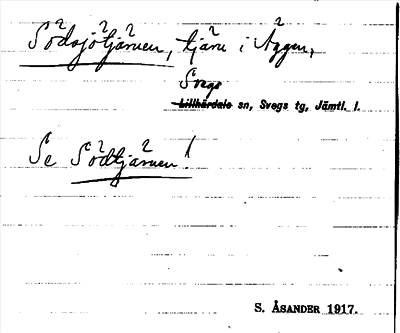 Södsjötjärnen, tjärn i Äggen,
Svegs
Lillhärdals sn, Svegs tg, Jämtl. l.
Se Södtjärnen!
S. ÅSANDER 1917.